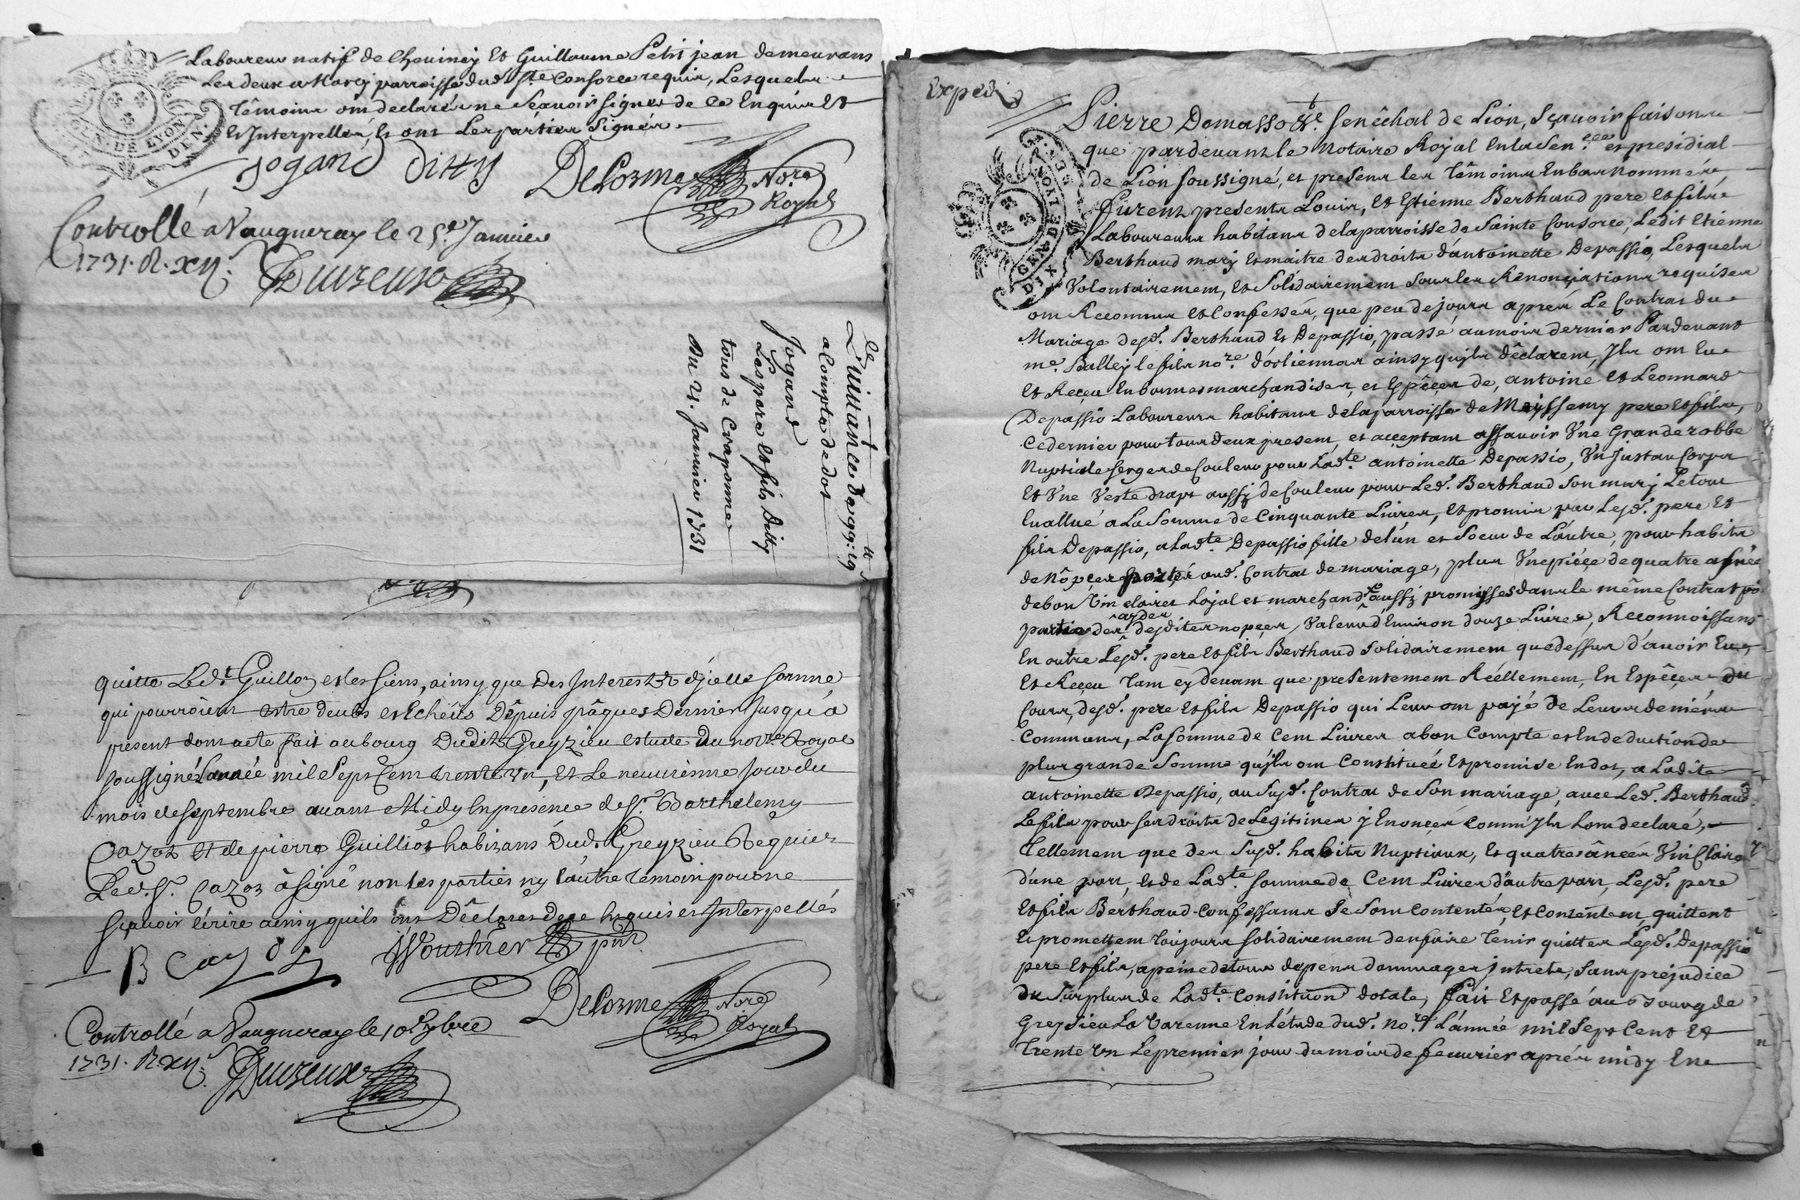 Laboureur natif de Chevinay Et Guillaume Petit jean demeurans
Les deux a Marcy parroisse dud. Ste Consorce requis, Lesquels
têmoins ont declarés ne Sçavoir signer de ce Enquis Et
Et Interpellés, Et ont Les parties Signés.
GEN. DE LYON
DIX DEN.
Jogand Dilly Delorme Nore
Royal
Controllé a Vaugneray le 25e Janvier
1731. R. xij s.
Duvzeux
De
Quittance de 99: 19
a Compte de dot
Jogand
Les pere et fils Dilly
tous de Craponne
Du 21. Janvier 1731
quitte Led. Guilloz et les siens, ainsy que Des Interests d'jcelle somme
qui pourroient estre deubs et Echeüs Dêpuis pâques Dernier jusqu'a
présent dont acte fait au bourg Dudit Greyzieu estude du nore Royal
soussigné L'année mil Sept Cent trente un, Et Le neuvieme jour du
mois de septembre avant Midy En présence de Sr. Barthelemy
Cazot et de pierre Guilliot habitans dud. Greyzieu Requis
Led. Sr. Cazot à signé non Les parties ny l'autre temoin pour ne
sçavoir Ecrire ainsy quils ont Dêclarés de ce Enquis et Interpellés
B Cazot
Delorme Nore
Royal
Controllé a Vaugneray le 10e 7bre
1731. R. xij s.
Duvzeux
Exped.
Pierre Domasso &c. Senêchal de Lion, Sçavoir faisons
que pardevant Le Notaire Royal En la Sen.cée et presidial
de Lion soussigné, et present les Têmoins En bas Nommés,
GEN. DE LYON
DIX DEN.
furent presents Louis, Et Estienne Berthaud pere Et fils
Laboureurs habitans de la parroisse de Sainte Consorce, Ledit Etienne
Berthaud mary Et maitre des droits d'antoinette Depassio, Lesquels
Volontairement, Et Solidairement sous les Rénonçiations requises
ont Reconnu Et Confessér, que peu de jours aprés Le Contrat du
Mariage desd. Berthaud Et Depassio, passé au mois dernier Pardevant
me. Bulley le fils nore. d'orliennas ainsy qu'jls dêclarent, Jls ont Eu
Et Reçeu En bonnes marchandises, et Espêçes de, antoine Et Leonnard
Depassio Laboureurs habitans de la parroisse de Meyssemy pere Et fils,
Ce dernier pour tous deux present, et acceptant assavoir Une Grande robbe
Nuptiale Serge de Couleur pour Ladte. antoinette Depassio, Un Justaucorps
Et Une Veste drapt aussy de Couleur pour Led. Berthaud Son mary Le tout
Evallué a La Somme de Cinquante Livres, Et promis par Lesd. pere Et
fils Depassio, a Ladte. Depassio fille de l'un et Soeur de L'autre, pour habits
de Nôpçes portés aud. Contrat de mariage, plus Une piéçe de quatre asnées
de bon Vin clairet Loyal et marchand, aussy promises dans le même Contrat po.
partie des desdites nopçes, Valeur d'Environ douze Livres, Reconnoissans
En outre Lesd. pere Et fils Berthaud Solidairement que dessus d'avoir Eu
Et Reçeu tant cy devant que présentement Réêllement En Espêçes du
Cours, desd. pere Et fils Depassio qui Leur ont payé de Leurs deniers
Communs, La Somme de Cent Livres a bon Compte et En deduction de
plus grande Somme qu'jls ont Constituée Et promise En dot, a Ladite
antoinette Depassio, au Susd. Contrat de Son mariage, avec Led. Berthaud
Le fils pour ses droits de Legitimes y Enonçés Comm'Jls L'ont declaré,
Tellement que des Susd. habits Nuptiaux, Et quatre ânées Vin Clairet
d'une part, Et de Ladte. Somme de Cent Livres d'autre part, Lesd. pere
Et fils Berthaud Confessants Se Sont Contentés, Et Contentent, quittent
Et promettent toujours Solidairement d'en faire tenir quittes Lesd. Depassio
pere Et fils, a peine de tous depens dommages jntrêts, Sans préjudice
du Surplus de Ladte. Constituon dotale, fait Et passé au Bourg de
Greysieu La Varenne En L'étude dud. nore. L'année mil Sept Cent Et
Trente Un Le premier jour du mois de fevrier aprés midy En